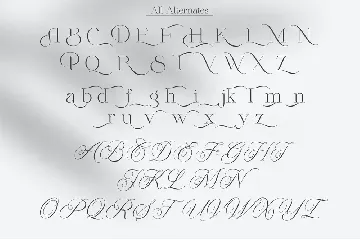 All Alternates
A B C D E F H K L M N
P Q R S T V W X Z
a b d f g h i jk l m n
r u v w x y z
A B C D E F G H I
J K L M N
O P Q R S T U V W X Y Z